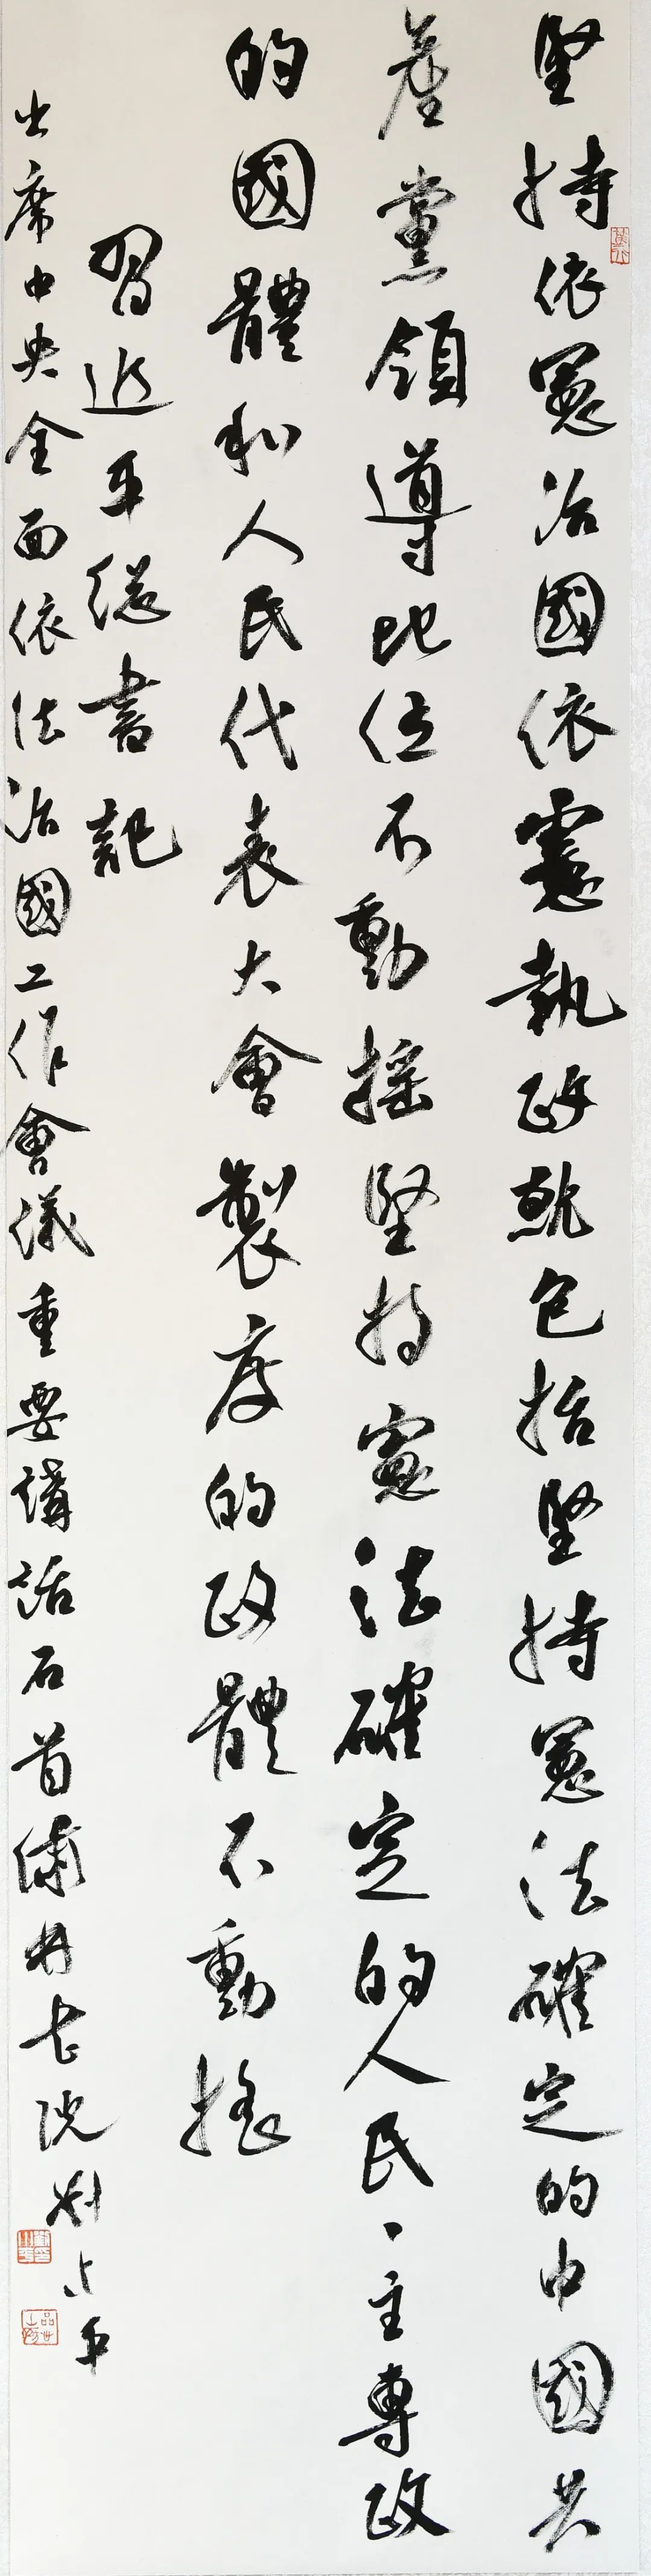 堅持依憲治國依憲執政就包括堅持憲法確定的中國共
產黨領導地位不動搖堅持憲法確定的人民、主專政
的國體和人民代表大會製度的政體不動搖
習近平總書記
出席中央全面依法治國工作會議重要講話石首繡林書院刘占平